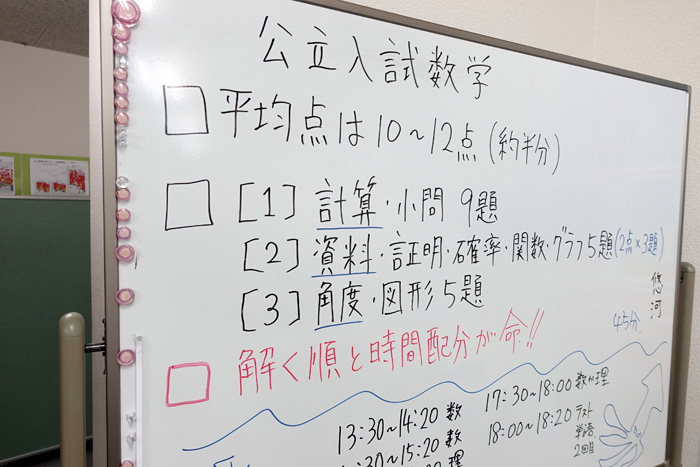 公立入試数学
平均点は10~12点(約半分)
[1] 計算・小問 9題
[2] 資料・証明・確率・関数・グラフ5題(2点×3題)
[3] 角度・図形5題
悠河
45分
解く順と時間配分が命!!
13:30~14:20 数
30~15:20 数
17:30~18:00 数か理
18:00~18:20 テスト
単語
2回目